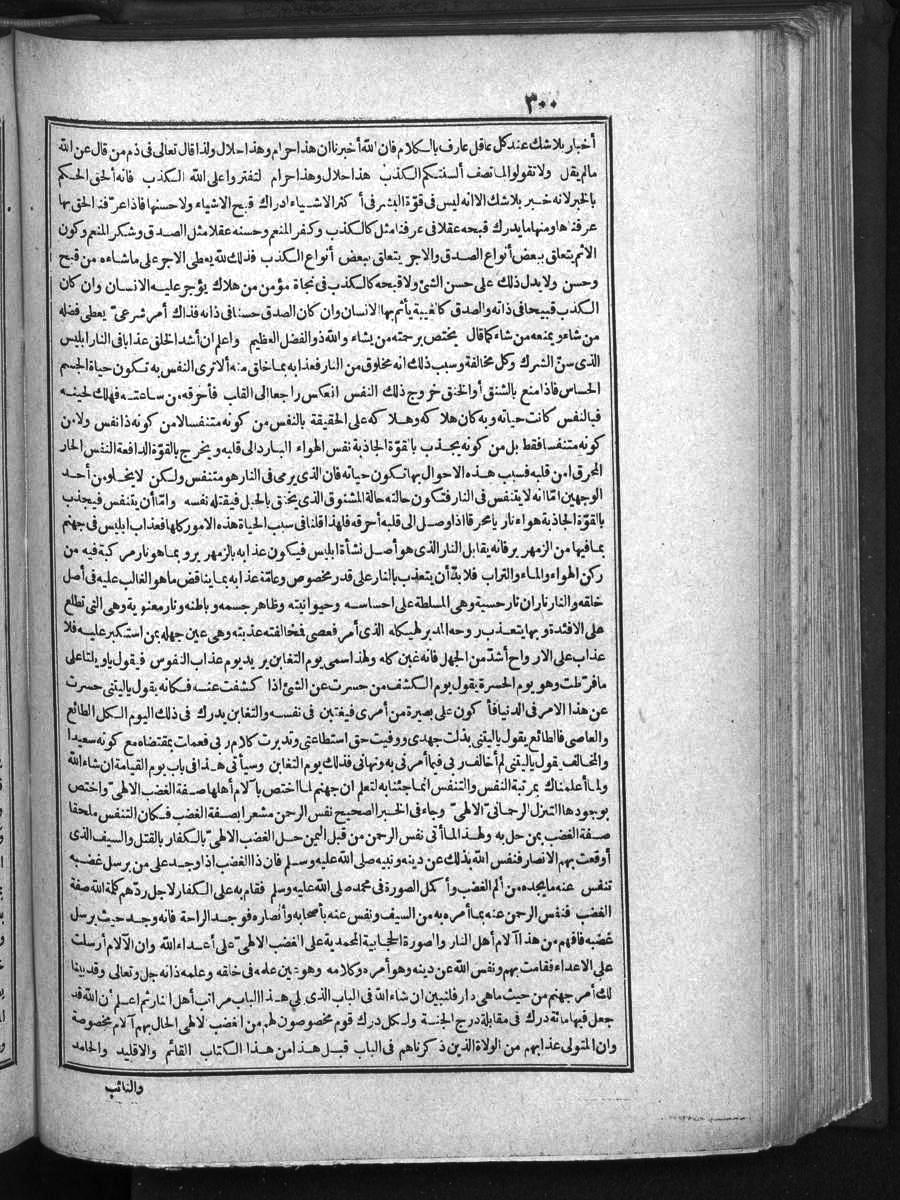 ٣٠٠
أخبار بلا شك عند كل عاقل عارف بالكلام فان الله أخبرنا ان هذا حرام وهذا حلال ولذا قال تعالى فى ذم من قال عن الله
مالم يقل ولا تقولوا لما تصف ألسنتكم الكذب هذا حلال وهذا حرام لتفتروا على الله الكذب فانه ألحق الحكم
بالخبر لانه خبر بلا شك الا انه ليس فى قوة البشر فى أكثر الاشياء ادراك قبح الاشياء ولا حسنها فاذا عرفنا الحق بها
عرفناها ومنها ما يدرك قبحه عقلا فى عرفنا مثل كالكذب وكفر المنعم وحسنه عقلا مثل الصدق وشكر المنعم وكون
الاثم يتعلق ببعض أنواع الصدق والاجر يتعلق ببعض أنواع الكذب فذلك لله يعطى الاجر على ماشاءه من قبح
وحسن ولا يدل ذلك على حسن الشئ ولا قبحه كالكذب فى نجاة مؤمن من هلاك يؤجر عليه الانسان وان كان
الكذب قبيحا فى ذاته والصدق كالغيبة يأثم بها الانسان وان كان الصدق حسنا فى ذاته فذاك أمر شرعىّ يعطى فضله
من شاء ويمنعه من شاء كما قال يختص برحمته من يشاء والله ذو الفضل العظيم واعلم ان أشد الخلق عذابا فى النار ابليس
الذى سنّ الشرك وكل مخالفة وسبب ذلك انه مخلوق من النار فعذابه بما خلق منه ألا ترى النفس به تكون حياة الجسم
الحساس فاذا منع بالشنق أو الخنق خروج ذلك النفس انعكس راجعا الى القلب فأحرقه من ساعته فهلك لحينه
فبالنفس كانت حياته وبه كان هلاكه وهلاكه على الحقيقة بالنفس من كونه متنفسا لا من كونه ذا نفس ولا من
كونه متنفسا فقط بل من كونه يجذب بالقوّة الجاذبة نفس الهواء البارد الى قلبه ويخرج بالقوّة الدافعة النفس الحار
المحرق من قلبه فسبب هذه الاحوال بها تكون حياته فان الذى يرمى فى النار هو متنفس ولكن لا يخلو من أحد
الوجهين امّا انه لا يتنفس فى النار فتكون حالته حالة المشنوق الذى يخنق بالحبل فيقتله نفسه وامّا أن يتنفس فيجذب
بالقوّة الجاذبة هواء ناريا محرقا اذا وصل الى قلبه أحرقه فلهذا قلنا فى سبب الحياة هذه الامور كلها فعذاب ابليس فى جهنم
بما فيها من الزمهرير فانه يقابل النار الذى هو أصل نشأة ابليس فيكون عذابه بالزمهرير وبما هو نار مركبة فيه من
ركن الهواء والماء والتراب فلا بدّ أن يتعذب بالنار على قدر مخصوص وعامّة عذابه بما يناقض ما هو الغالب عليه فى أصل
خلقه والنار ناران نار حسية وهى المسلطة على احساسه وحيوانيته وظاهر جسمه وباطنه ونار معنوية وهى التى تطلع
على الافئدة وبها يتعذب روحه المدبر لهيكله الذى أمر فعصى فمخالفته عذبته وهى عين جهله بمن استكبر عليه فلا
عذاب على الارواح أشدّ من الجهل فانه غبن كله ولهذا سمى يوم التغابن يريد يوم عذاب النفوس فيقول ياويلتا على
ما فرّطت وهو يوم الحسرة يقول يوم الكشف من حسرت عن الشئ اذا كشفت عنه فكانه يقول ياليتنى حسرت
عن هذا الامر فى الدنيا فأكون على بصيرة من أمرى فيغتبن فى نفسه والتغابن يدرك فى ذلك اليوم الكل الطائع
والعاصى فالطائع يقول ياليتنى بذلت جهدى ووفيت حق استطاعتى وتدبرت كلام ربى فعملت بمقتضاه مع كونه سعيدا
والمخالف يقول ياليتنى لم أخالف ربى فيما أمرنى به ونهانى فذلك يوم التغابن وسيأتى هذا فى باب يوم القيامة ان شاء الله
ولما أعلمناك بمرتبة النفس والتنفس انما جئنا به لتعلم ان جهنم لما اختص بآلام أهلها صفة الغضب الالهىّ واختص
بوجودها التنزل الرحمانىّ الالهىّ وجاء فى الخبر الصحيح نفس الرحمن مشعرا بصفة الغضب فكان التنفس ملحقا
صفة الغضب بمن حل به ولهذا لما أتى نفس الرحمن من قبل اليمن حل الغضب الالهىّ بالكفار بالقتل والسيف الذى
أوقعت بهم الانصار فنفس الله بذلك عن دينه ونبيه صلى الله عليه وسلم فان ذا الغضب اذا وجد على من يرسل غضبه
تنفس عنه ما يجده من ألم الغضب وأكمل الصورة فى محمد صلى الله عليه وسلم فقام به على الكفار لاجل ردّهم كلمة الله صفة
الغضب فنفس الرحمن عنه بما أمره به من السيف ونفس عنه بأصحابه وأنصاره فوجد الراحة فانه وجد حيث يرسل
غضبه فافهم من هذا آلام أهل النار والصورة الحجابية المحمدية على الغضب الالهىّ على أعداء الله وان الآلام أرسلت
على الاعداء فقامت بهم ونفس الله عن دينه وهو أمره وكلامه وهو عين علمه فى خلقه وعلمه ذاته جل وتعالى وقد بينا
لك أمر جهنم من حيث ما هى دار فلنبين ان شاء الله فى الباب الذى يلى هذا الباب مراتب أهل النار ثم اعلم أن الله قد
جعل فيها مائة درك فى مقابلة درج الجنة ولكل درك قوم مخصوصون لهم من الغضب الالهى الحال بهم آلام مخصوصة
وان المتولى عذابهم من الولاة الذين ذكرناهم فى الباب قبل هذا من هذا الكتاب القائم والاقليد والحامد
والنائب